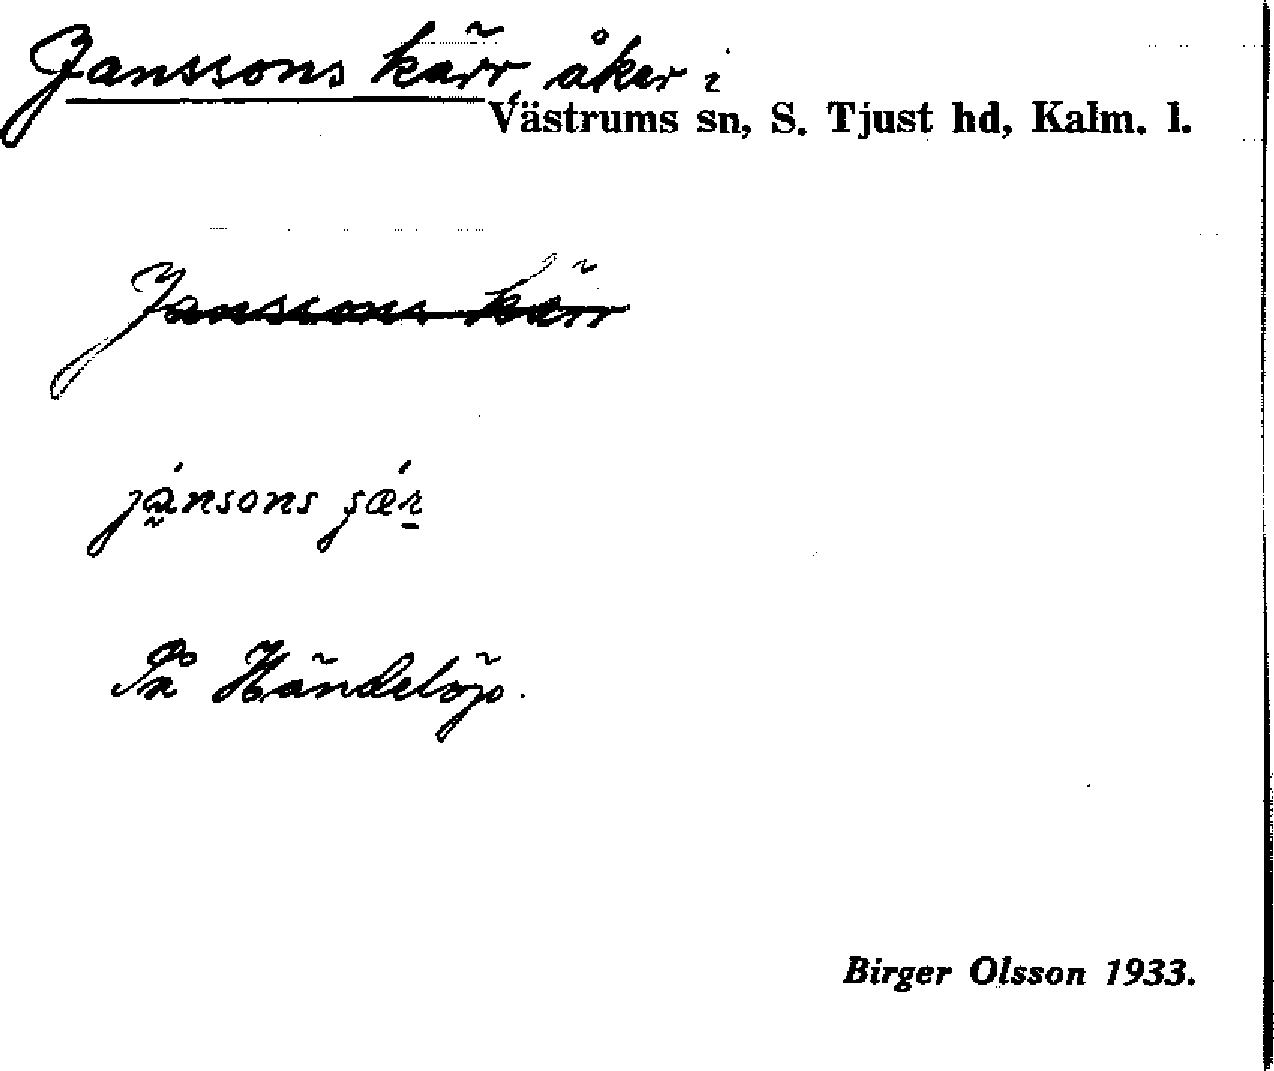 Janssons kärr, åker i
Västrums sn, S. Tjust hd, Kalm. l.
Janssons kärr
På Händelöp.
Birger Olsson 1933.